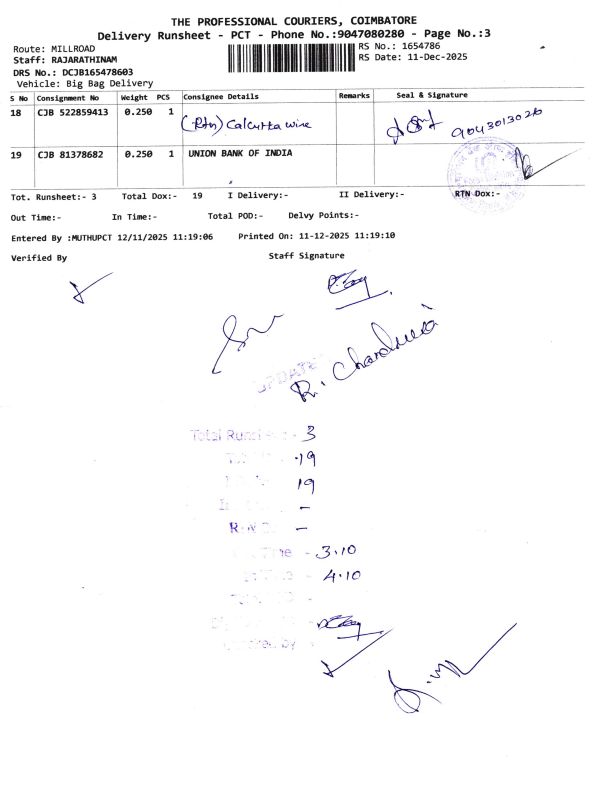 THE PROFESSIONAL COURIERS, COIMBATORE
Delivery Runsheet - PCT - Phone No.:9047080280 - Page No.:3
Route: MILLROAD RS No.: 1654786
Staff: RAJARATHINAM RS Date: 11-Dec-2025
DRS No.: DCJB165478603
Vehicle: Big Bag Delivery
S No Consignment No Weight PCS Consignee Details Remarks Seal & Signature
18 CJB 522859413 0.250 1 (Rtn) Calcutta wire 9043013026
19 CJB 81378682 0.250 1 UNION BANK OF INDIA
Tot. Runsheet:- 3 Total Dox:- 19 I Delivery:- II Delivery:- RTN Dox:-
Out Time:- In Time:- Total POD:- Delvy Points:-
Entered By :MUTHUPCT 12/11/2025 11:19:06 Printed On: 11-12-2025 11:19:10
Verified By Staff Signature
UPDATE
R. Chandra
Total Runs - 3
19
19
-
R -
Time - 3.10
- 4.10
by